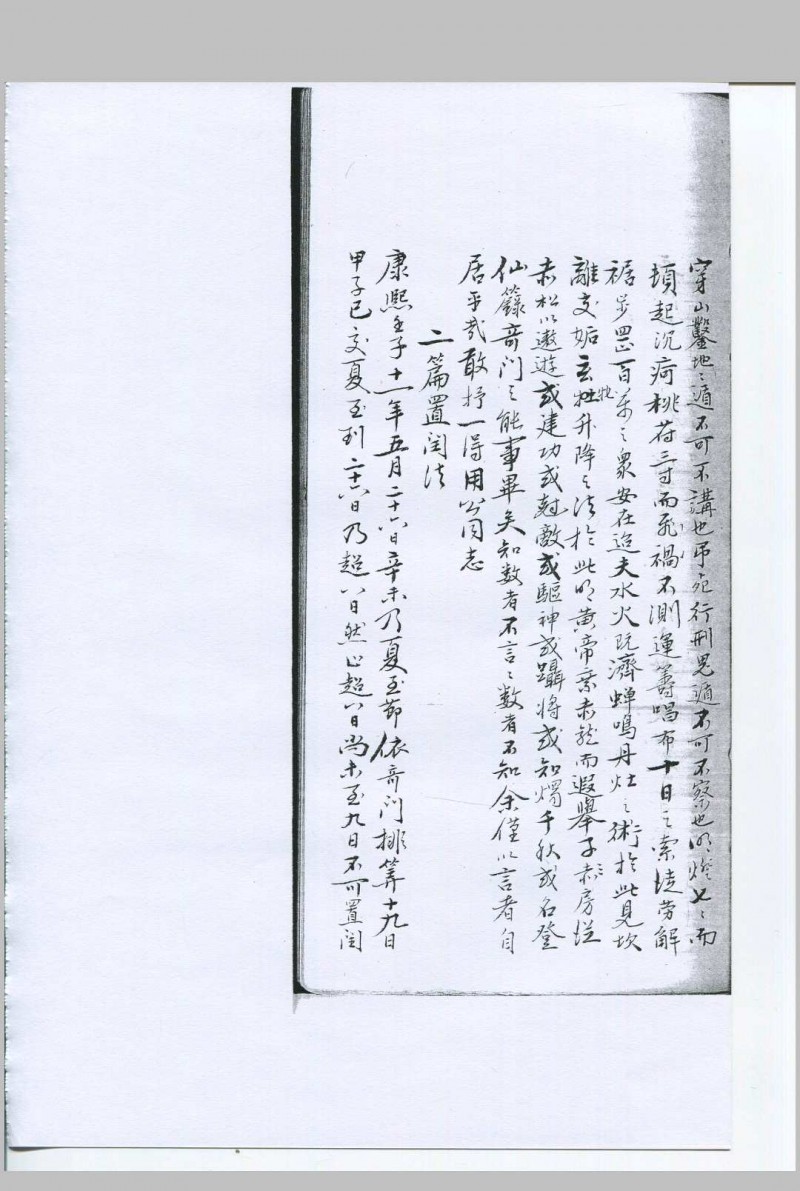 穿山鑿地〻遁不可不講也弔宛行刑鬼遁不可不察也明燈七〻而
頃起沉疴桃符三寸而飛禍不測運籌唱布十日之索徒劳解
裾步罡百萬之衆安在迨夫水火既濟蟬鳴丹灶之術於此見坎
離交姤玄牡牝升降之法於此明黄帝乘赤龍而遐舉子房從
赤松以遨遊或建功或尅敵或驅神或躡將或知燭千秋或名登
仙籙奇门之能事畢矣知数者不言〻数者不知余僅以言者自
居乎哉敢抒一得用公同志
二篇置閏法
康熙壬子十一年五月二十六日辛未乃夏至節依奇门排筭十九日
甲子已交夏至到二十六日乃超八日然止超八日尚未至九日不可置閏